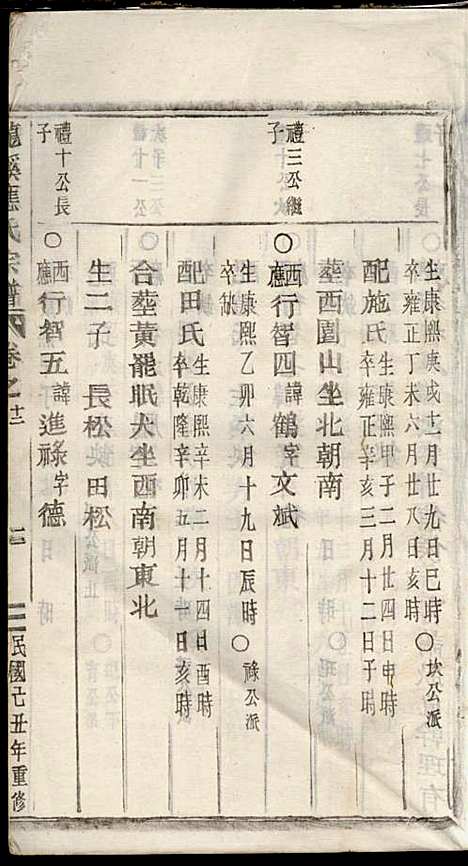 生康熙庚戌十二月廿九日巳時 〇坎公派
卒雍正丁未六月廿八日亥時
配施氏 生康熙甲子二月廿四日申時
卒雍正辛亥三月十二日子時
塟西園山坐北朝南
禮三公繼子
〇西應行智四諱鶴字文斌
生康熙乙卯六月十九日辰時 〇祿公派
卒缺
配田氏 生康熙辛未二月十四日酉時
卒乾隆辛卯五月十日亥時
合塟黃龍眠犬坐西南朝東北
生二子 長松 田松
禮十公長子
〇西應行智五諱進祿字德
龍溪應氏宗譜 卷之十三 二 民國己丑年重修